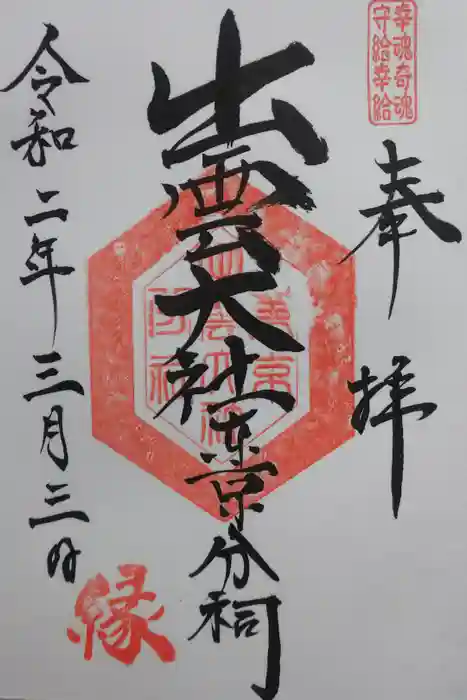 幸魂奇魂
守給幸給
奉拝
出雲大社東京分祠
令和二年三月三日
縁